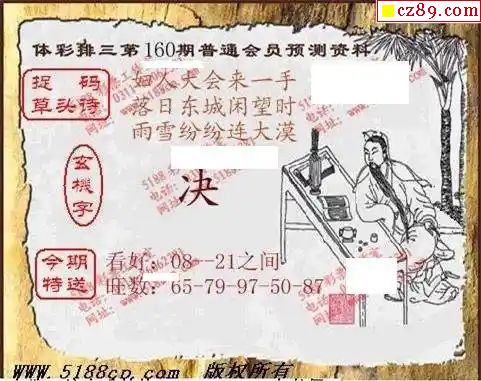 cz89.com
体彩排三第160期普通会员预测资料
捉码
草头诗
妇人大会来一手
落日东城闲望时
雨雪纷纷连大漠
玄機字
决
今期
特送
看好：08--21之间
旺数：65-79-97-50-87
www.5188cp.com 版权所有